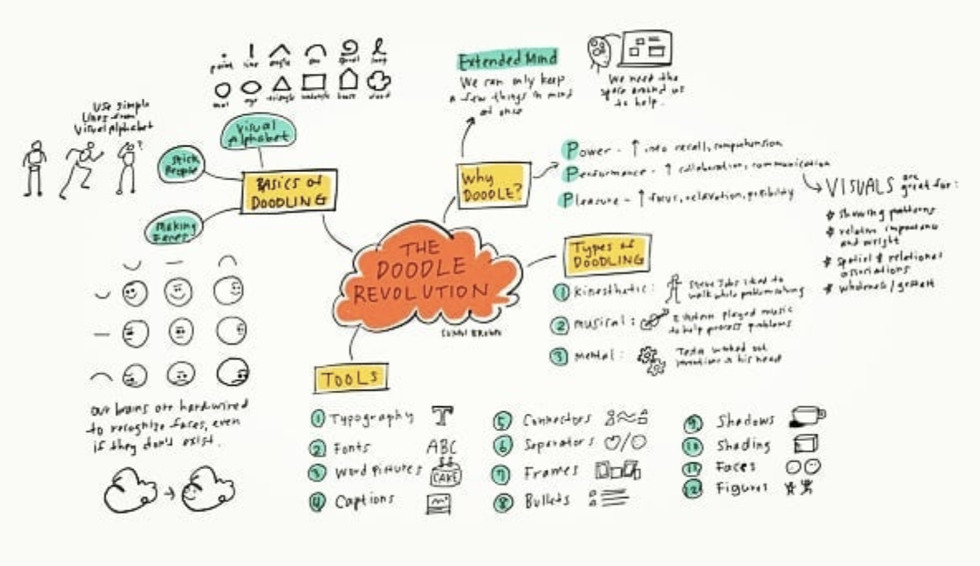 THE
DOODLE
REVOLUTION
SUNNI BROWN
BASICS of
DOODLING
Visual
Alphabet
point line angle arc spiral loop
oval eye triangle rectangle house cloud
Stick
People
Use simple
Lines from
Visual Alphabet
Making
Faces
our brains are hardwired
to recognize faces, even
if they don't exist.
Why
DOODLE?
Extended Mind
We can only keep
a few things in mind
at once
We need the
space around us
to help.
Power - ↑ info recall, comprehension
Performance - ↑ collaboration, communication
Pleasure - ↑ focus, relaxation,
VISUALS are
great for:
* showing patterns
* relative importance
and weight
* spatial & relational
associations
* wholeness/gestalt
Types of
DOODLING
1 Kinesthetic:
Steve Jobs liked to
walk while problem solving
2 musical:
Einstein played music
to help process problems
3 mental:
Tesla worked out
inventions in his head
TOOLS
1 Typography T
2 Fonts ABC
3 Word pictures CAKE
4 Captions
5 Connectors
6 Separators
7 Frames
8 Bullets
9 Shadows
10 Shading
11 Faces
12 Figures